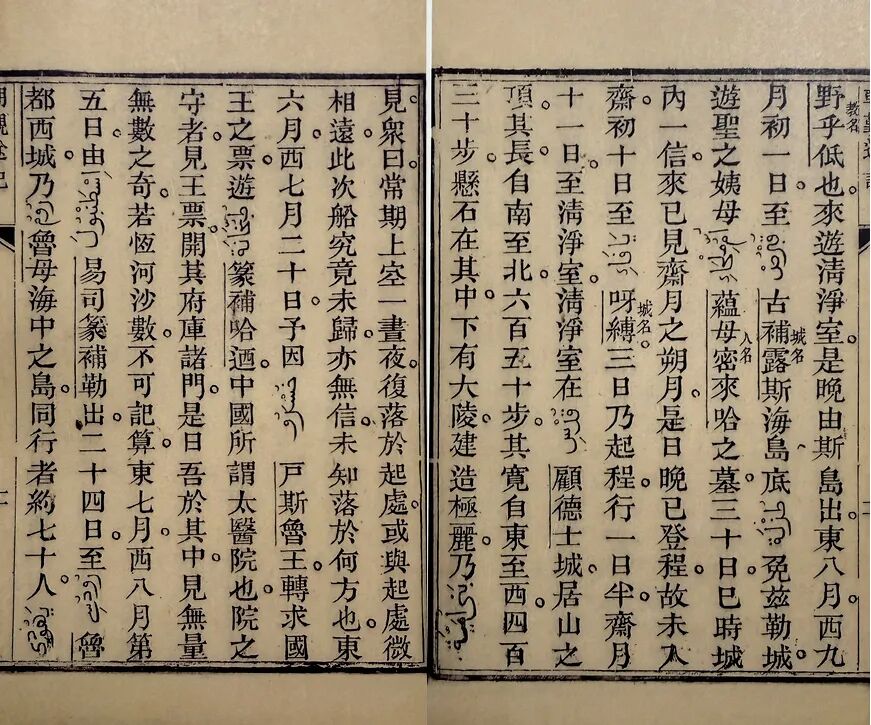 朝覲途記
見。衆曰常期上室一晝夜。復落於起處。或與起處微
相遠。此次船究竟未歸。亦無信。未知落於何方也。東
六月西七月二十日。予因 戸斯魯王。轉求國
王之票。遊 篆補哈。迺中國所謂太醫院也。院之
守者。見王票。開其府庫諸門。是日吾於其中。見無量
無數之奇。若恆河沙數。不可記算。東七月。西八月第
五日。由 易司篆補勒出。二十四日。至 魯
都西城。乃 魯母海中之島。同行者約七十人。
野乎低也。教名 來遊清淨室。是晚由斯島出。東八月西九
月初一日。至 古補露斯城名海島底 兔茲勒城。
遊聖之姨母 蘊母密來哈人名之墓。三十日。巳時城
內一信來。已見齋月之朔月。是日晚已登程。故未入
齋。初十日至 呀縛城名。三日乃起程。行一日半。齋月
十一日。至清淨室。清淨室在 顧德士城。居山之
頂。其長。自南至北。六百五十步。其寬。自東至西。四百
三十步。懸石在其中。下有大陵。建造極麗。乃